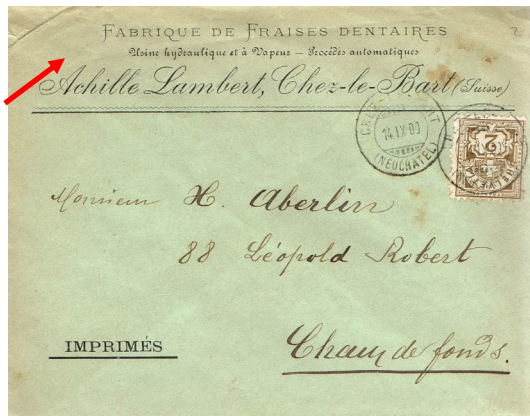 FABRIQUE DE FRAISES DENTAIRES
Usine hydraulique et à Vapeur – Procédés automatiques
Achille Lambert, Chez-le-Bart (Suisse)
14 IX 00
(NEUCHATEL)
2
Monsieur H. Aberlin
88 Léopold Robert
IMPRIMÉS
Chaux de fonds.